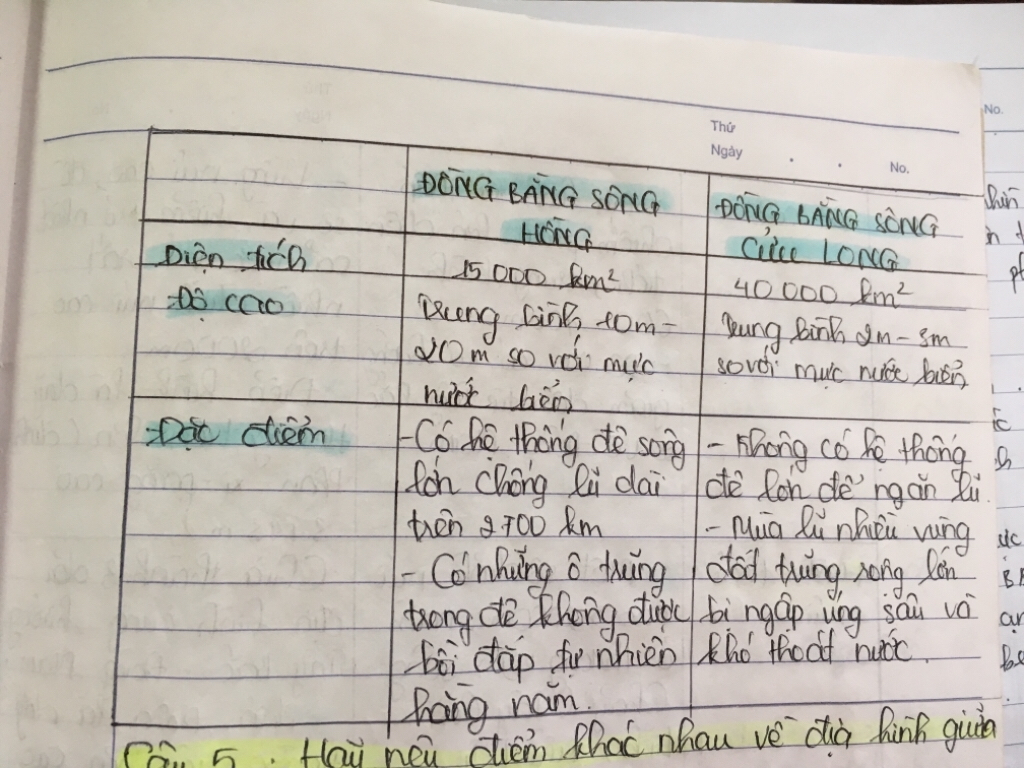 Thứ
Ngày . . No.
No.
ĐỒNG BẰNG SÔNG
HỒNG
ĐỒNG BẰNG SÔNG
CỬU LONG
Diện tích
15 000 km²
40 000 km²
Độ cao
Trung bình 10m –
20m so với mực
nước biển
Trung bình 2m – 3m
so với mực nước biển
Đặc điểm
- Có hệ thống đê sông
lớn chống lũ dài
trên 2700 km
- Có những ô trũng
trong đê không được
bồi đắp tự nhiên
hằng năm.
- Không có hệ thống
đê lớn để ngăn lũ.
- Mùa lũ nhiều vùng
đất trũng rộng lớn
bị ngập úng sâu và
khó thoát nước.
Câu 5. Hãy nêu điểm khác nhau về địa hình giữa